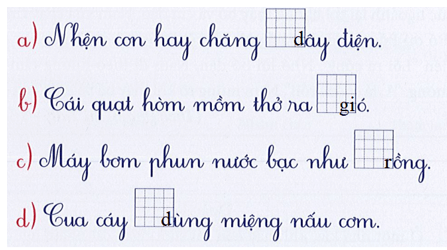 a) Nhện con hay chăng dây điện.
b) Cái quạt hòm mồm thở ra gió.
c) Máy bơm phun nước bạc như rồng.
d) Cua cáy dùng miệng nấu cơm.